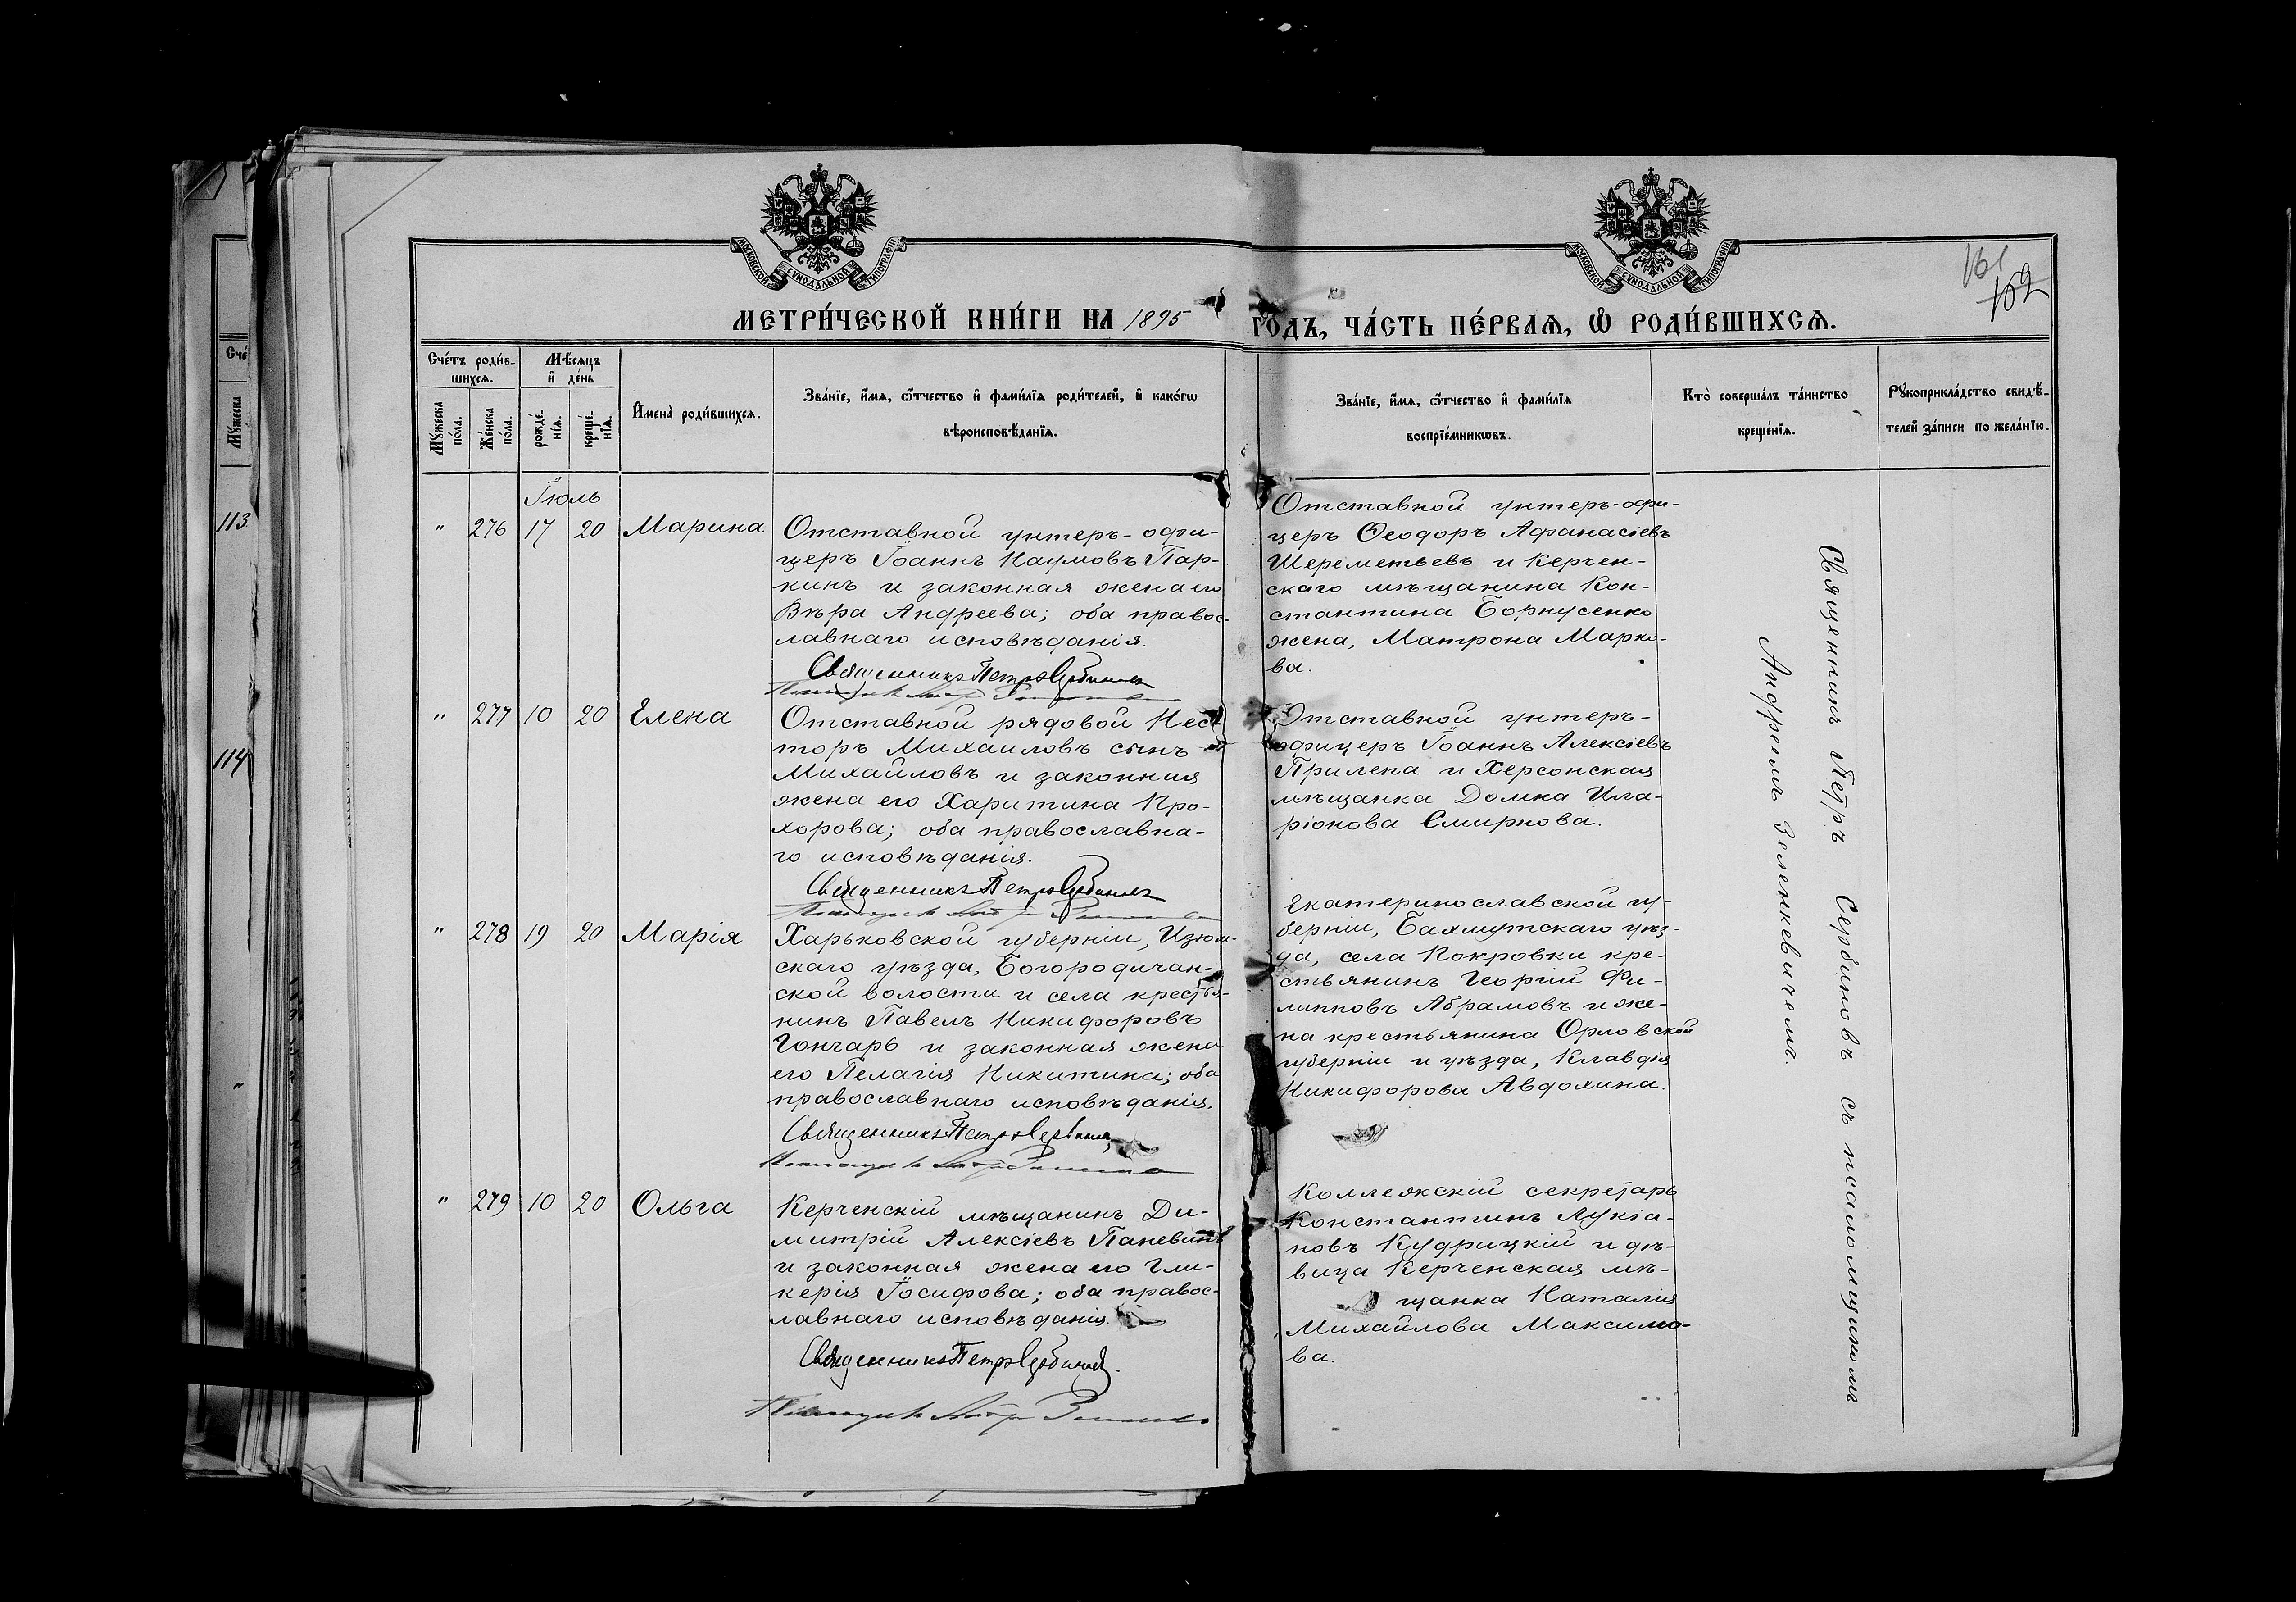 МОСКОВСКОЙ СѴНОДАЛЬНОЙ ТИПОГРАФІИ
МОСКОВСКОЙ СѴНОДАЛЬНОЙ ТИПОГРАФІИ
161
102
МЕТРИ́ЧЕСКОЙ КНИ́ГИ НА 1895 ГОДЪ, ЧА́СТЬ ПЕ́РВАѦ, Ѽ РОДИ́ВШИХСѦ.
Сче́тъ роди́в-
шихсѧ.
Мѣ́сѧцъ
и҆ де́нь
Мꙋ́жеска
по́ла.
Же́нска
по́ла.
рожде́-
нїѧ.
креще́-
нїѧ.
И҆мена̀ роди́вшихсѧ.
Зва́нїе, и҆́мѧ, ѻ҆́тчество и҆ фами́лїѧ роди́телей, и҆ како́гѡ
вѣроисповѣ́данїѧ.
Зва́нїе, и҆́мѧ, ѻ҆́тчество и҆ фами́лїѧ
воспрїе́мникѡвъ.
Кто̀ соверша́лъ та́инство
креще́нїѧ.
Рꙋкоприкла́дство свидѣ́-
телей за́писи по жела́нїю.
Сче
Мꙋ́жеска
113
114
"
Іюль
" 276 17 20 Марина
Отставной унтеръ-офи-
церъ Іоаннъ Наумовъ Пар-
кинъ и законная жена его
Вѣра Андреева; оба правос-
лавнаго исповѣданія.
Священникъ Петръ Сербиновъ
Отставной унтеръ-офи-
церъ Ѳеодоръ Афанасіевъ
Шереметьевъ и Керчен-
скаго мѣщанина Кон-
стантина Борнусенко
жена, Матрона Марко-
ва.
" 277 10 20 Елена
Отставной рядовой Нес-
торъ Михаиловъ сынъ
Михайловъ и законная
жена его Харитина Про-
хорова; оба православна-
го исповѣданія.
Священникъ Петръ Сербиновъ
Отставной унтеръ-
офицеръ Іоаннъ Алексіевъ
Прилепа и Херсонская
мѣщанка Домна Ила-
ріонова Смирнова.
" 278 19 20 Марія
Харьковской губерніи, Изюм-
скаго уѣзда, Богородичан-
ской волости и села крестья-
нинъ Павелъ Никифоровъ
Гончаръ и законная жена
его Пелагія Никитина; оба
православнаго исповѣданія.
Священникъ Петръ Сербиновъ
Екатеринославской гу-
берніи, Бахмутскаго уѣз-
да, села Покровки кре-
стьянинъ Георгій Фи-
липповъ Абрамовъ и же-
на крестьянина Орловской
губерніи и уѣзда, Клавдія
Никифорова Авдохина.
" 279 10 20 Ольга
Керченскій мѣщанинъ Ди-
митрій Алексіевъ Паневинъ
и законная жена его Гли-
керія Іосифова; оба правос-
лавнаго исповѣданія.
Священникъ Петръ Сербиновъ.
Коллежскій секретарь
Константинъ Лукіа-
новъ Кудрицкій и дѣ-
вица Керченская мѣ-
щанка Наталія
Михайлова Максимо-
ва.
Священникъ Петръ Сербиновъ съ псаломщикомъ
Андреемъ Зеленкевичемъ.